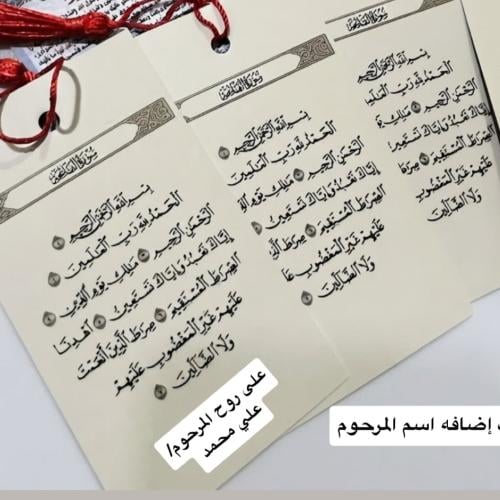 سورة الفاتحة
بِسْمِ اللَّهِ الرَّحْمَنِ الرَّحِيمِ
الْحَمْدُ لِلَّهِ رَبِّ الْعَالَمِينَ
الرَّحْمَنِ الرَّحِيمِ مَالِكِ يَوْمِ الدِّينِ
إِيَّاكَ نَعْبُدُ وَإِيَّاكَ نَسْتَعِينُ اهْدِنَا
الصِّرَاطَ الْمُسْتَقِيمَ صِرَاطَ الَّذِينَ أَنْعَمْتَ
عَلَيْهِمْ غَيْرِ الْمَغْضُوبِ عَلَيْهِمْ
وَلَا الضَّالِّينَ
على روح المرحوم/
علي محمد
سورة الفاتحة
بِسْمِ اللَّهِ الرَّحْمَنِ الرَّحِيمِ
الْحَمْدُ لِلَّهِ رَبِّ الْعَالَمِينَ
الرَّحْمَنِ الرَّحِيمِ مَالِكِ يَوْمِ
إِيَّاكَ نَعْبُدُ وَإِيَّاكَ نَسْتَعِينُ
الصِّرَاطَ الْمُسْتَقِيمَ صِرَاطَ
عَلَيْهِمْ غَيْرِ الْمَغْضُوبِ
وَلَا الضَّالِّينَ
سورة الفاتحة
بِسْمِ اللَّهِ الرَّحْمَنِ الرَّحِيمِ
الْحَمْدُ لِلَّهِ رَبِّ
الرَّحْمَنِ الرَّحِيمِ مَالِكِ
إِيَّاكَ نَعْبُدُ وَإِيَّاكَ
الْمُسْتَقِيمَ
عَلَيْهِمْ غَيْرِ الْمَغْضُوبِ
وَلَا الضَّالِّينَ
إضافه اسم المرحوم